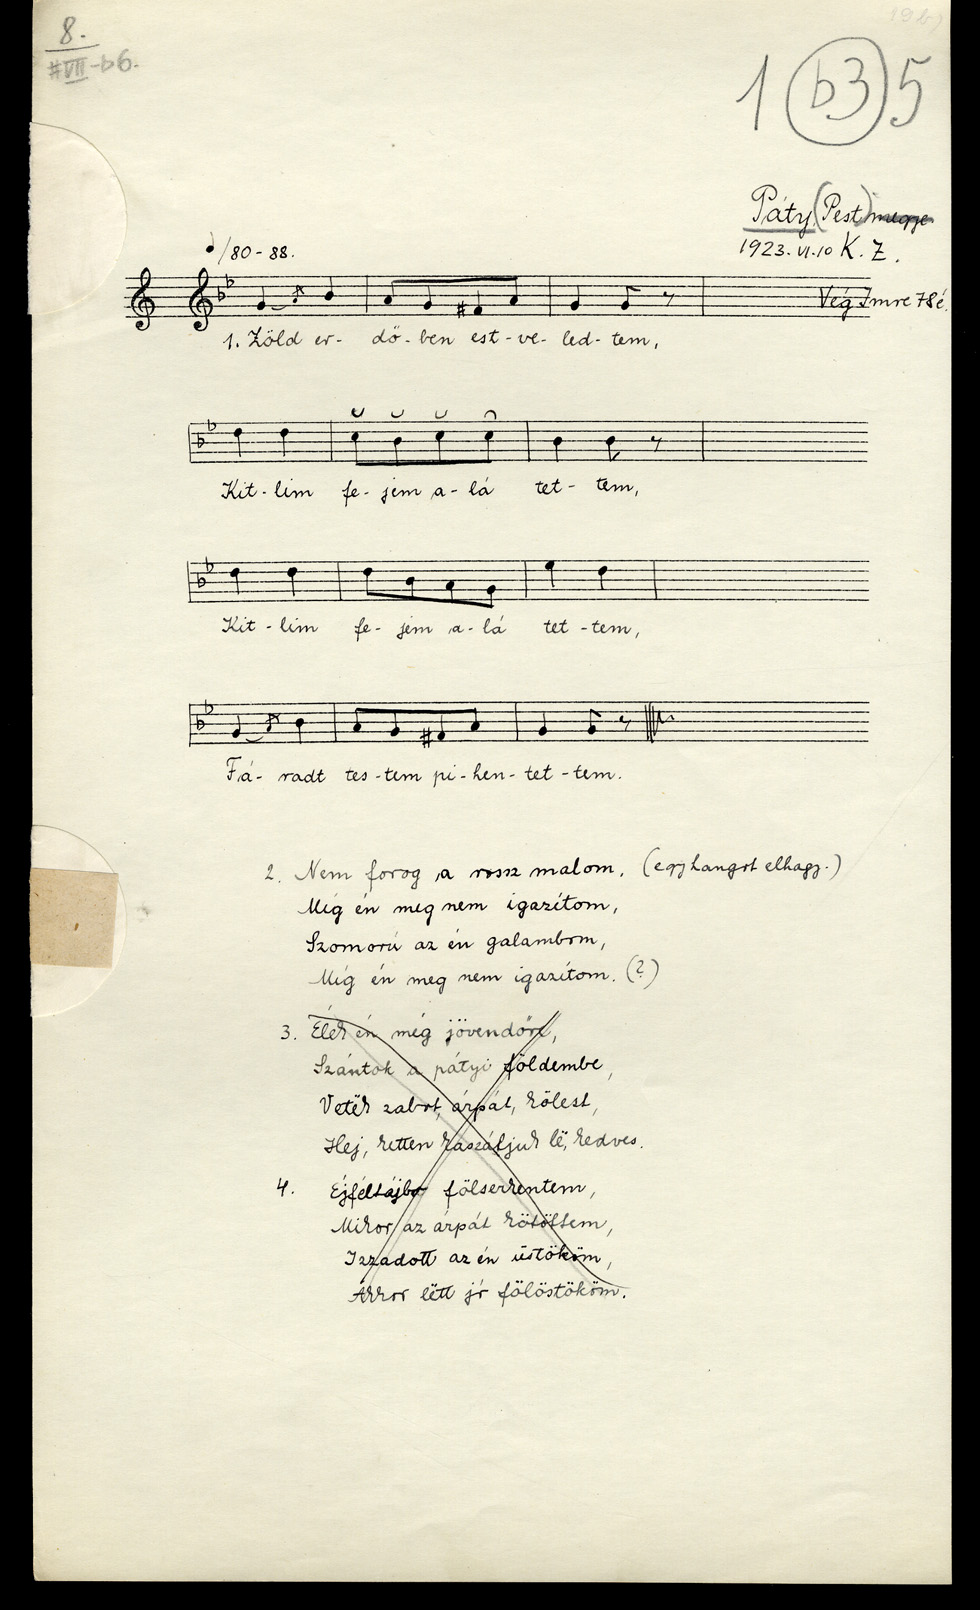 8.
#VII-b6.
19b)
1 b3 5
Páty (Pest) megye
1923. VI. 10 K. Z.
Vég Imre 78 é.
/80-88.
1. Zöld er- dő-ben est-ve-led-tem,
Kit-lim fe-jem a-lá tet-tem,
Kit-lim fe-jem a-lá tet-tem,
Fá-radt tes-tem pi-hen-tet-tem.
2. Nem forog a rossz malom, (egy hangot elhagy.)
Míg én meg nem igazítom,
Szomorú az én galambom,
Míg én meg nem igazítom. (?)
3. Élek én még jövendőre,
Szántok a pátyi földembe,
Veték zabot, árpát, kölest,
Hej, ketten kaszáljuk lë, kedves.
4. Éjféltájbo fölserkentem,
Mikor az árpát kötöttem,
Izzadott az én üstököm,
Akkor lëtt jó fölöstököm.